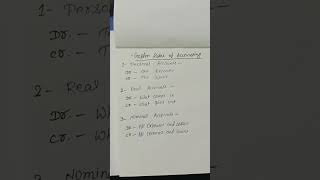 Golden Rules of Accounting
1- Personal Accounts -
Dr. - The Receiver
Cr. - The Giver
2- Real Accounts -
Dr. - What comes in
Cr. - What goes out
3- Nominal Accounts -
Dr. - All Expenses and Losses
Cr. - All Incomes and Gains